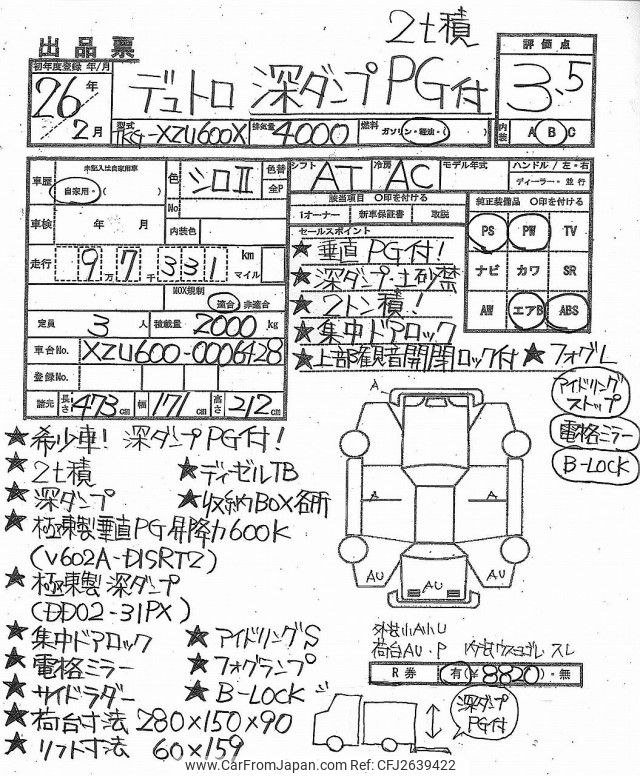 2t積
出品票
初年度登録 年/月
26年
2月
デュトロ 深ダンプ PG付
評価点
3.5
型式 TKG-XZU600X
排気量 4000
燃料 ガソリン・軽油・( )
内装 A B C
車歴
未記入は自家用車
自家用・( )
色 シロⅡ
色替 全P
No.
内装色
シフト AT
冷房 AC
モデル年式
ハンドル / 左・右
ディーラー・並行
車検 年 月
走行 9万7千331 km マイル
該当項目 ○印を付ける
1オーナー 新車保証書 取説
純正装備品 ○印を付ける
PS PW TV
ナビ カワ SR
AW エアB ABS
セールスポイント
★垂直PG付!
★深ダンプ・土砂禁
★2トン積!
★集中ドアロック
★上部観音開閉ロック付 ★フォグL
NOX規制
適合・非適合
定員 3人 積載量 2000 kg
車台No. XZU600-0006428
登録No.
諸元 長さ 473cm 幅 171cm 高さ 212cm
アイドリングストップ
電格ミラー
B-LOCK
★希少車! 深ダンプPG付!
★2t積 ★ディーゼルTB
★深ダンプ ★収納BOX各所
★極東製垂直PG昇降力600K
(V602A-D1SRTZ)
★極東製深ダンプ
(DD02-31PX)
★集中ドアロック ★アイドリングS
★電格ミラー ★フォグランプ
★サイドラダー ★B-LOCK
★荷台寸法 280×150×90
★リフト寸法 60×159
A
A A
AU AU AU
外装小A小U
荷台AU・P 内装ウスヨゴレ・スレ
R券 有(¥8820)・無
深ダンプPG付
www.CarFromJapan.com Ref: CFJ2639422